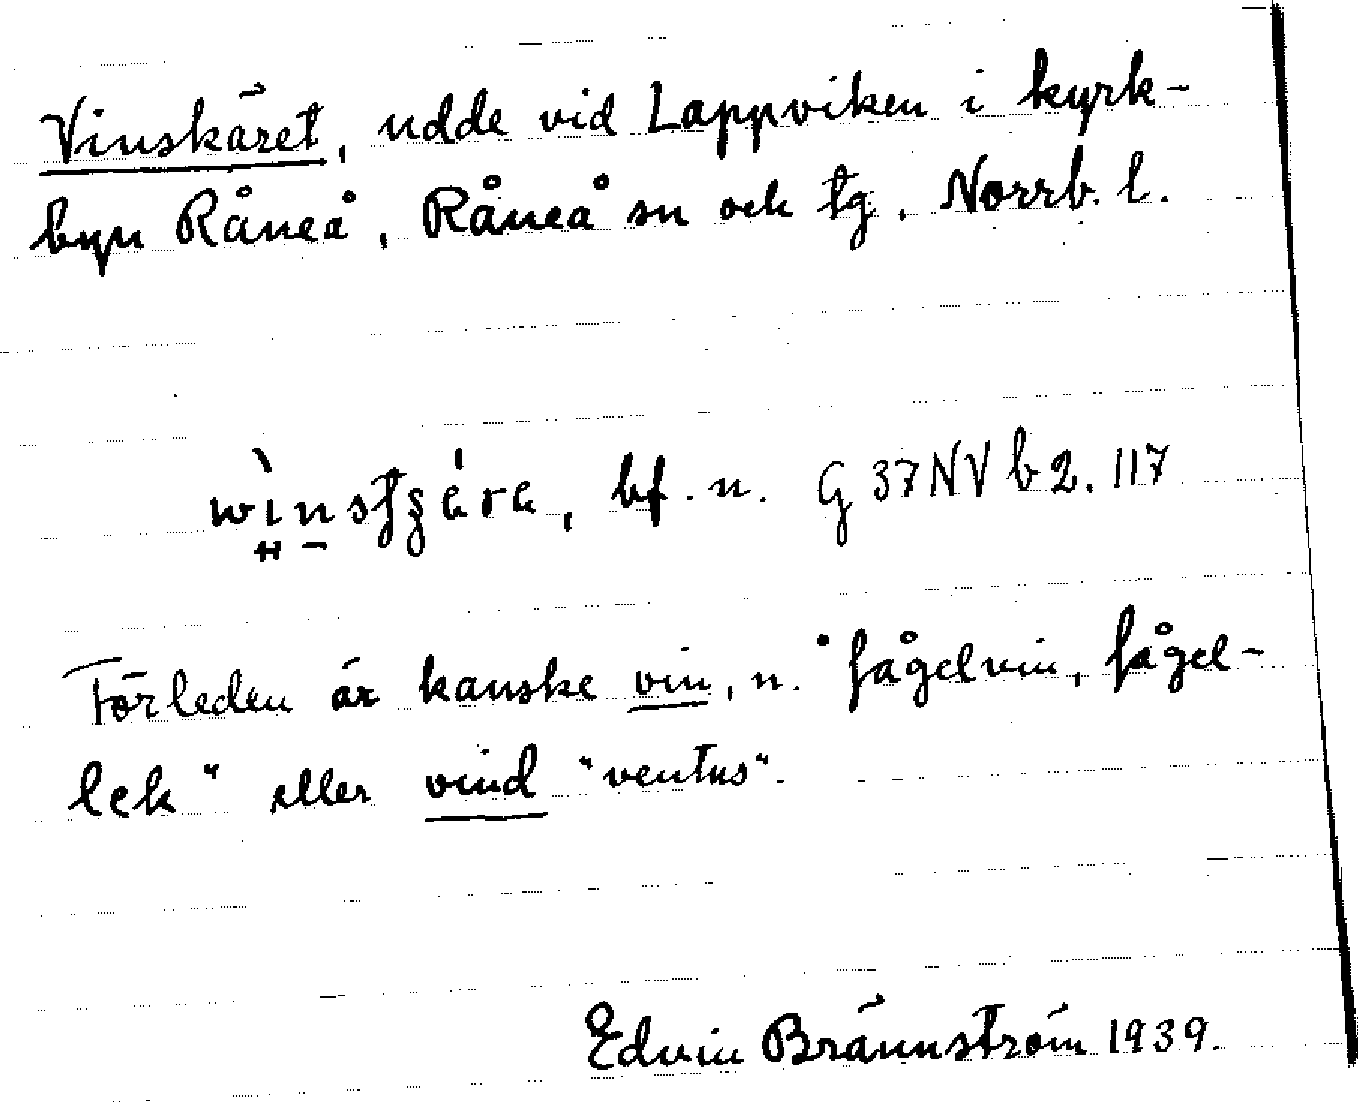 Vinskäret, udde vid Lappviken i kyrk-
byn Råneå, Råneå sn och tg, Norrb. l.
bf. n. G 37 NV b 2. 117
Förleden är kanske vin, n. "fågelvin, fågel-
lek" eller vind "ventus".
Edvin Brännström 1939.